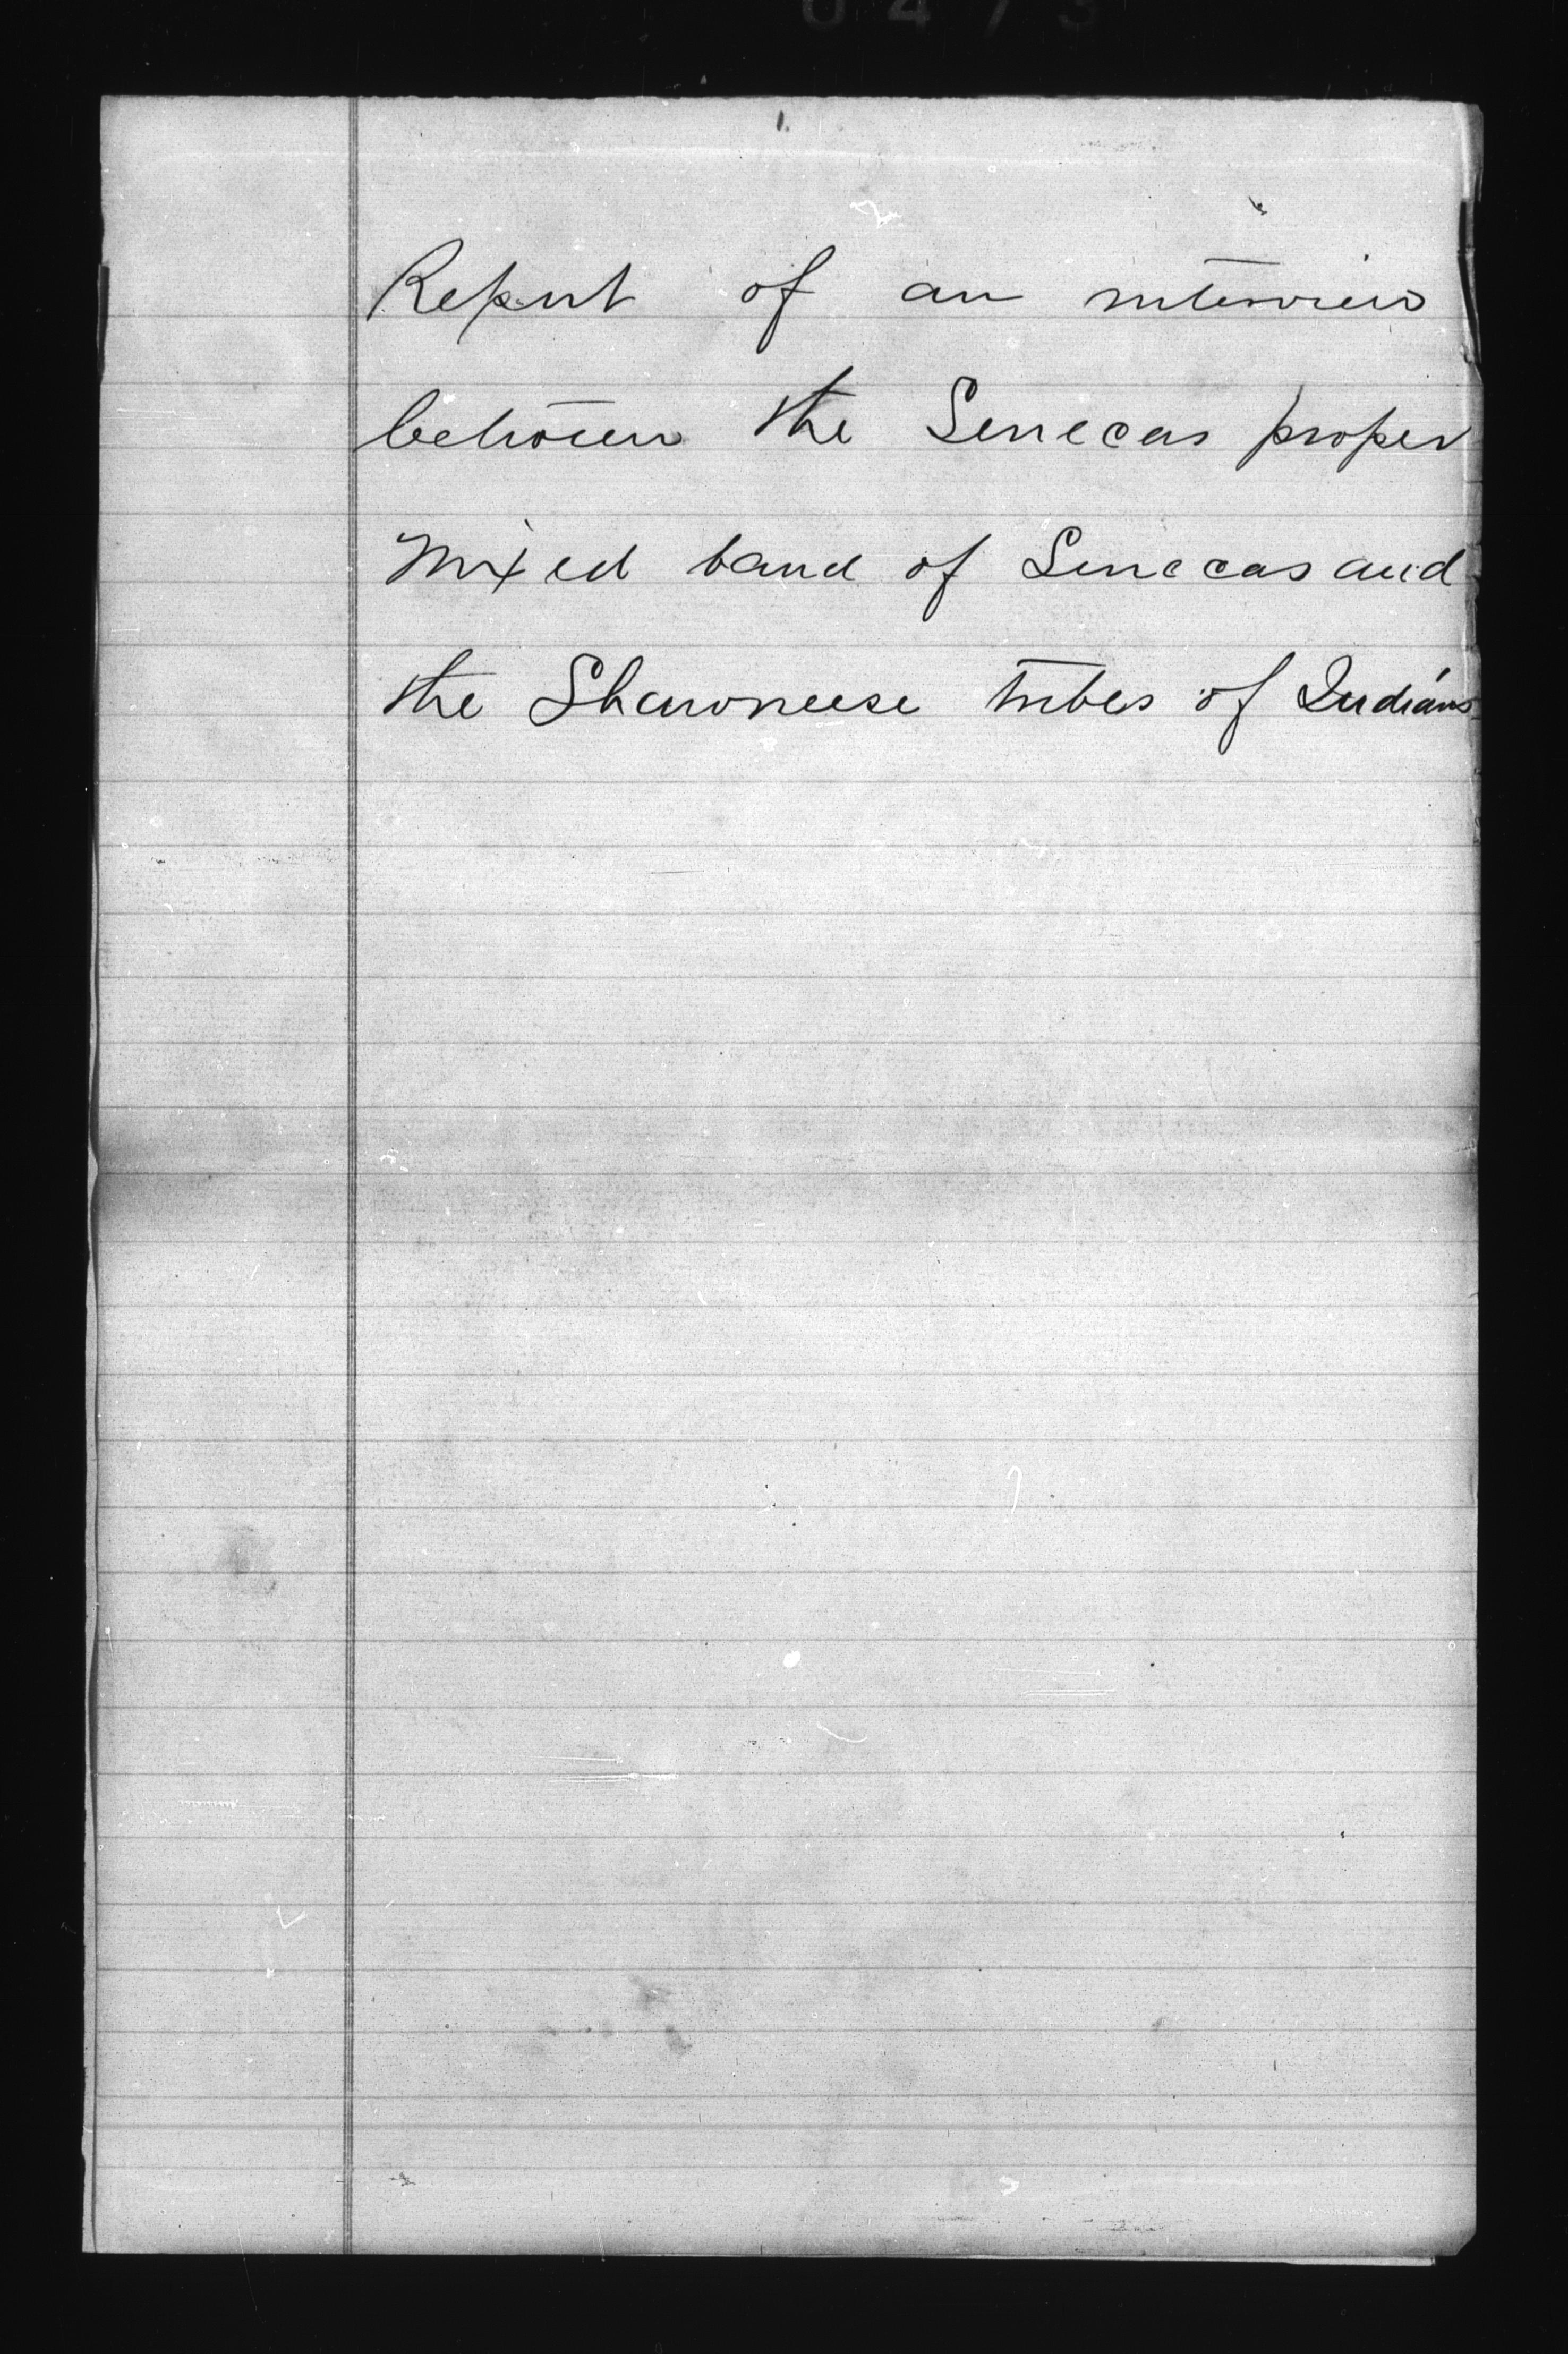 0473
1.
Report of an interview
between the Senecas proper
Mixed band of Senecas and
the Shawneese tribes of Indians